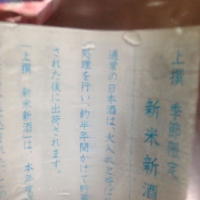 上撰 季節限定
新米新酒
通常の日本酒は、火入れと
処理を行い、約半年間かけて貯
された後に出荷されます
「上撰 新米新酒」は、本年度